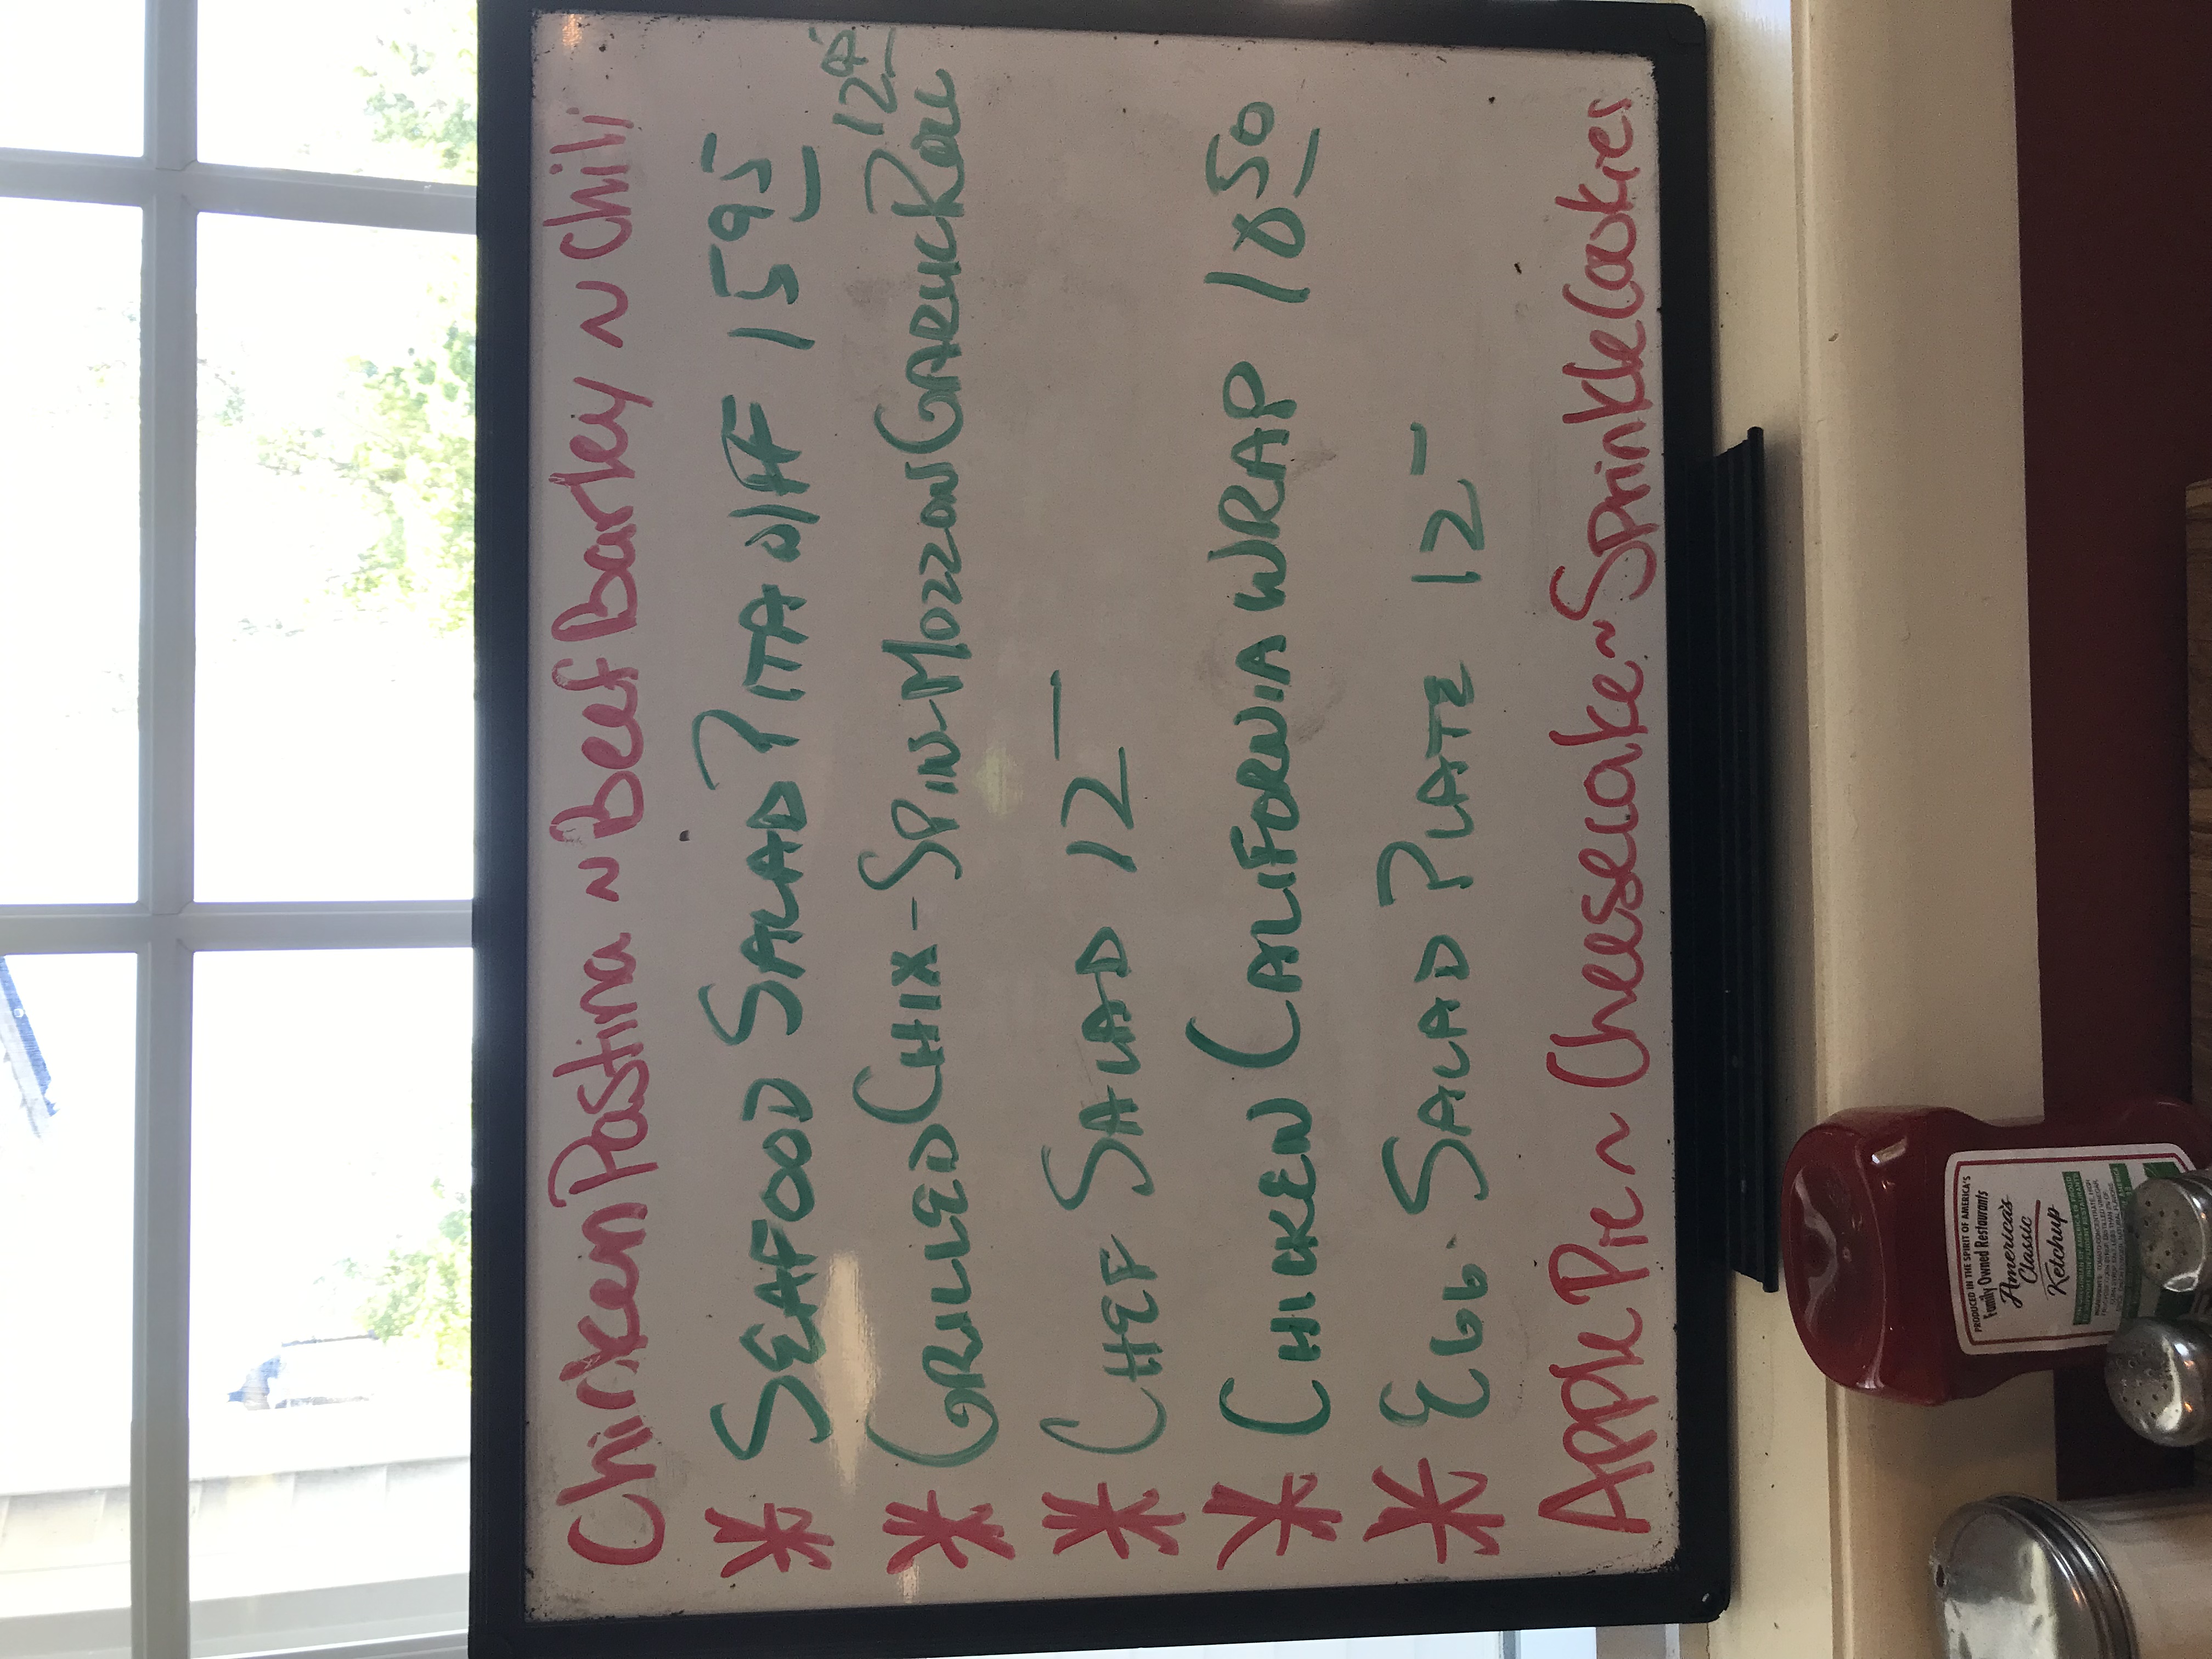 Chicken Pastina ~ Beef Barley ~ Chili
* SEAFOOD SALAD PITA w/FF 15 95
* GRILLED CHIX-SPIN-MOZZ ON GARLIC ROLL 12
* CHEF SALAD 12 –
* CHICKEN CALIFORNIA WRAP 10 50
* EGG SALAD PLATE 12 –
Apple Pie ~ Cheesecake ~ Sprinkle Cookies
PRODUCED IN THE SPIRIT OF AMERICA'S
Family Owned Restaurants
America's
Classic
Ketchup